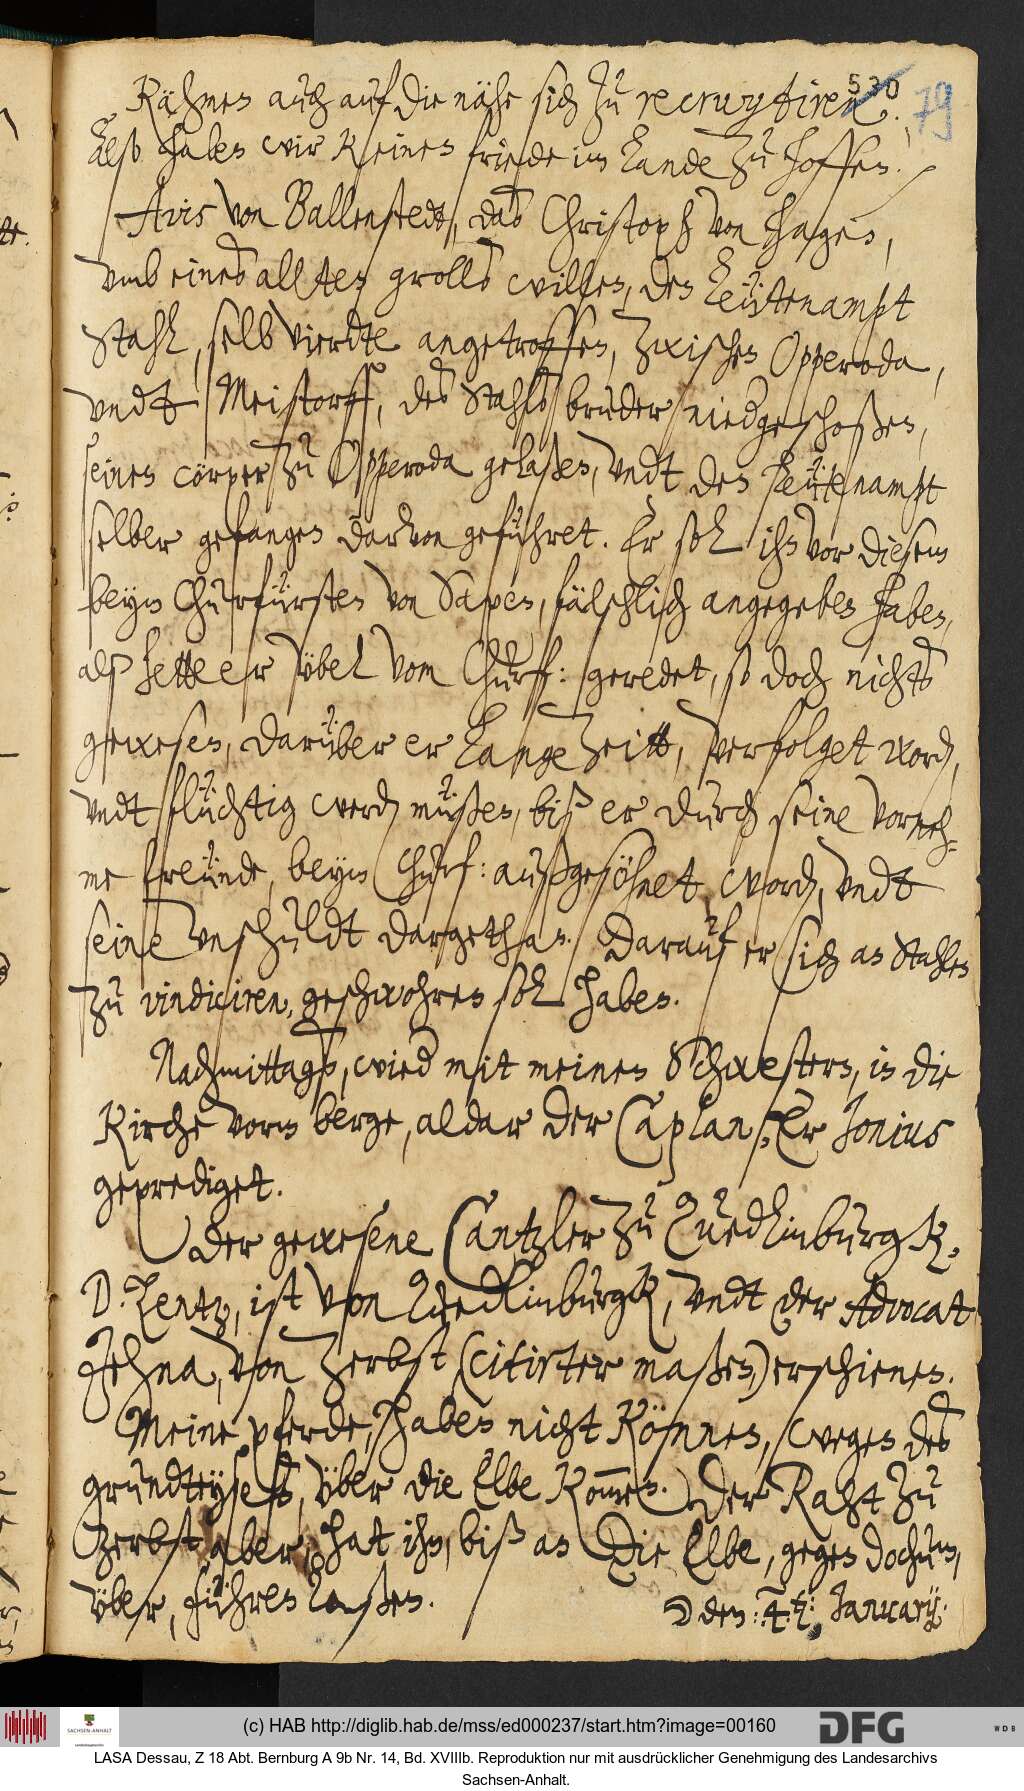 530
79
Kähmen auch auf die nähe sich zu recruytiren.
Also haben wir keinen friede im Lande zu hoffen.
Avis von Ballenstedt, das Christoph von Hagen,
vmb eines allten grolls willen, den Leütenampt
Stahl, selb vierdte angetroffen, zwischen Opperoda,
vndt Meistorff, des Stahls bruder niedgeschoßen,
seinen cörper zu Opperoda gelaßen, vndt den Leütenampt
selber gefangen darvon geführet. Er sol ihn vor diesem
beym Churfürsten von Saxen, fälschlich angegeben haben,
alß hette er vbel vom Churf: geredet, so doch nichts
gewesen, darüber er Lange zeitt, verfolget word,
vndt flüchtig werd müßen, biß er durch seine vorneh-
me freünde, beym Churf: außgesöhnet, word, vndt
seine vnschuldt dargethan. Darauf er sich an Stahlen
zu vindiciren, geschwohren sol haben.
Nachmittags, wied mit meinen Schwestern, in die
Kirche vorm berge, aldar der Caplan, Er Jonius
geprediget.
Der gewesene Cantzler zu Quedlinburgk,
D. Lentz, ist von Quedlinburgk, vndt der Advocat
Jehna, von Zerbst (citirter maßen) erschienen.
Meine pferde, haben nicht können, wegen des
grundteyses, vber die Elbe kommen. Der Raht zu
Zerbst aber, hat ihn, biß an die Elbe, gegen dochum,
vber, führen laßen.
☽ den: 4t: January.
(c) HAB http://diglib.hab.de/mss/ed000237/start.htm?image=00160
SACHSEN-ANHALT
DFG
WDB
LASA Dessau, Z 18 Abt. Bernburg A 9b Nr. 14, Bd. XVIIIb. Reproduktion nur mit ausdrücklicher Genehmigung des Landesarchivs
Sachsen-Anhalt.